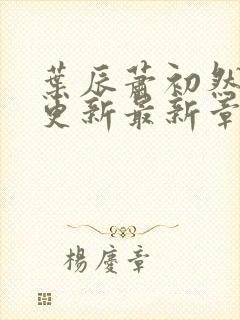 葉辰蕭初然
更新最新章
楊慶章